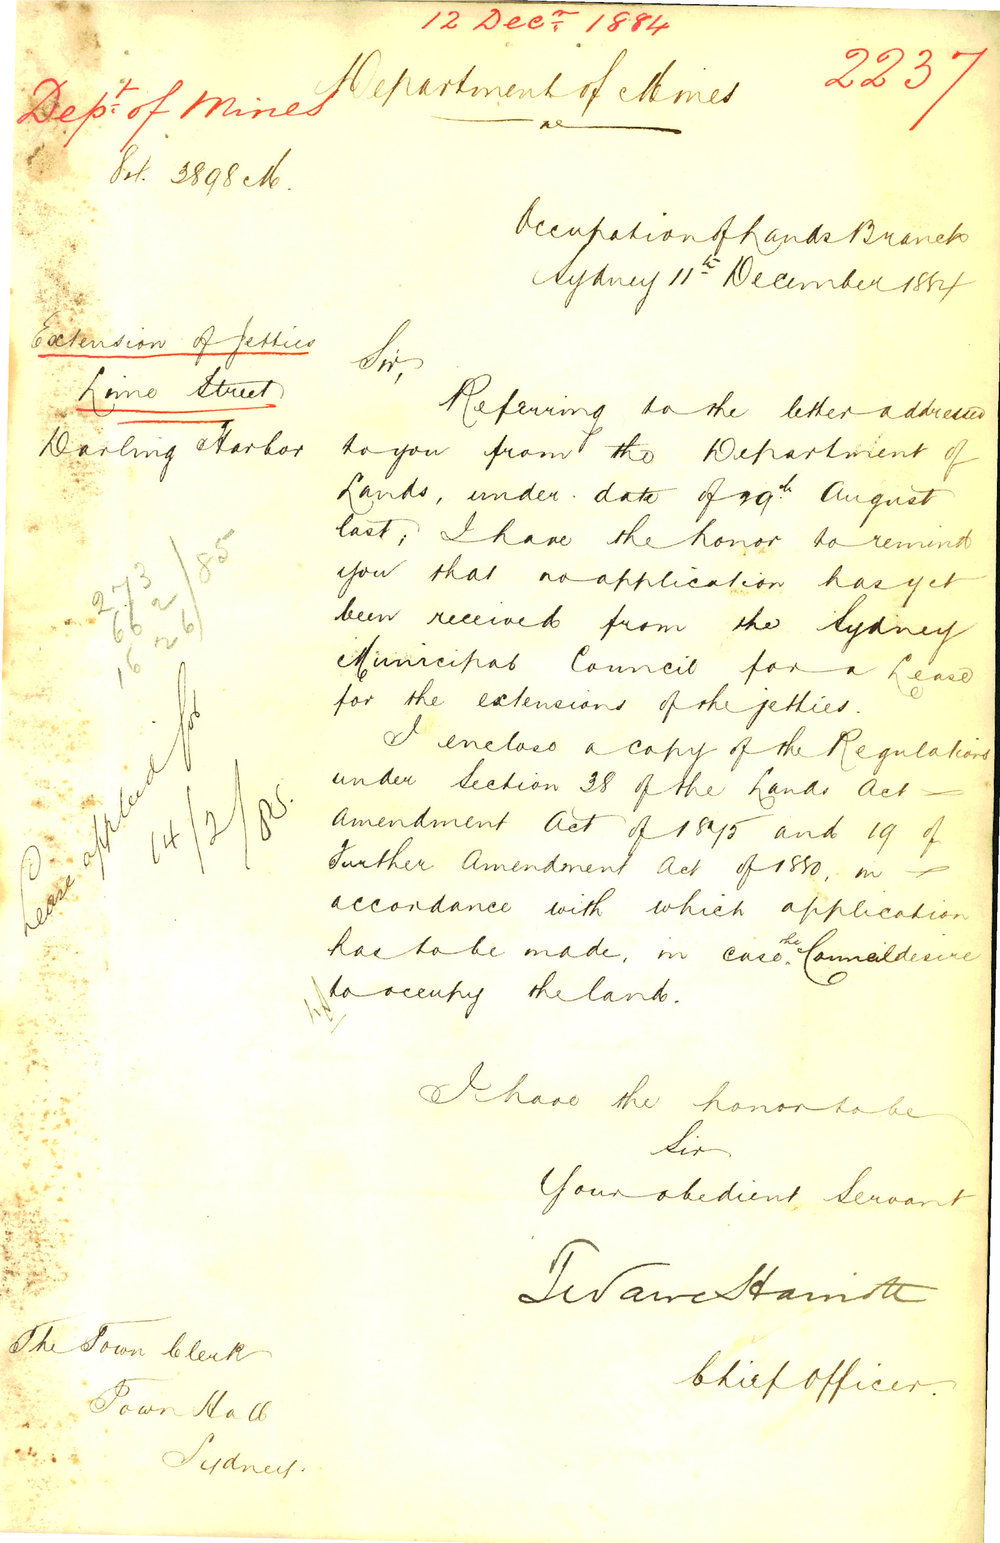 12 Decr. 1884
2237
Dept. of Mines
Department of Mines
3898 M.
Occupation of Lands Branch
Sydney 11th December 1884
Extension of Jetties
Lime Street
Darling Harbor
Sir,
Referring to the letter addressed
to you from the Department of
Lands, under date of 29th August
last, I have the honor to remind
you that no application has yet
been received from the Sydney
Municipal Council for a Lease
for the extensions of the jetties.
I enclose a copy of the Regulations
under Section 38 of the Lands Act
Amendment Act of 1875 and 19 of
Further Amendment Act of 1880, in
accordance with which application
has to be made, in case the Council desire
to occupy the land.
273
662
16 26 /85
Lease applied for
14/2/85.
I have the honor to be
Sir
Your obedient Servant
Chief Officer.
The Town Clerk
Town Hall
Sydney.